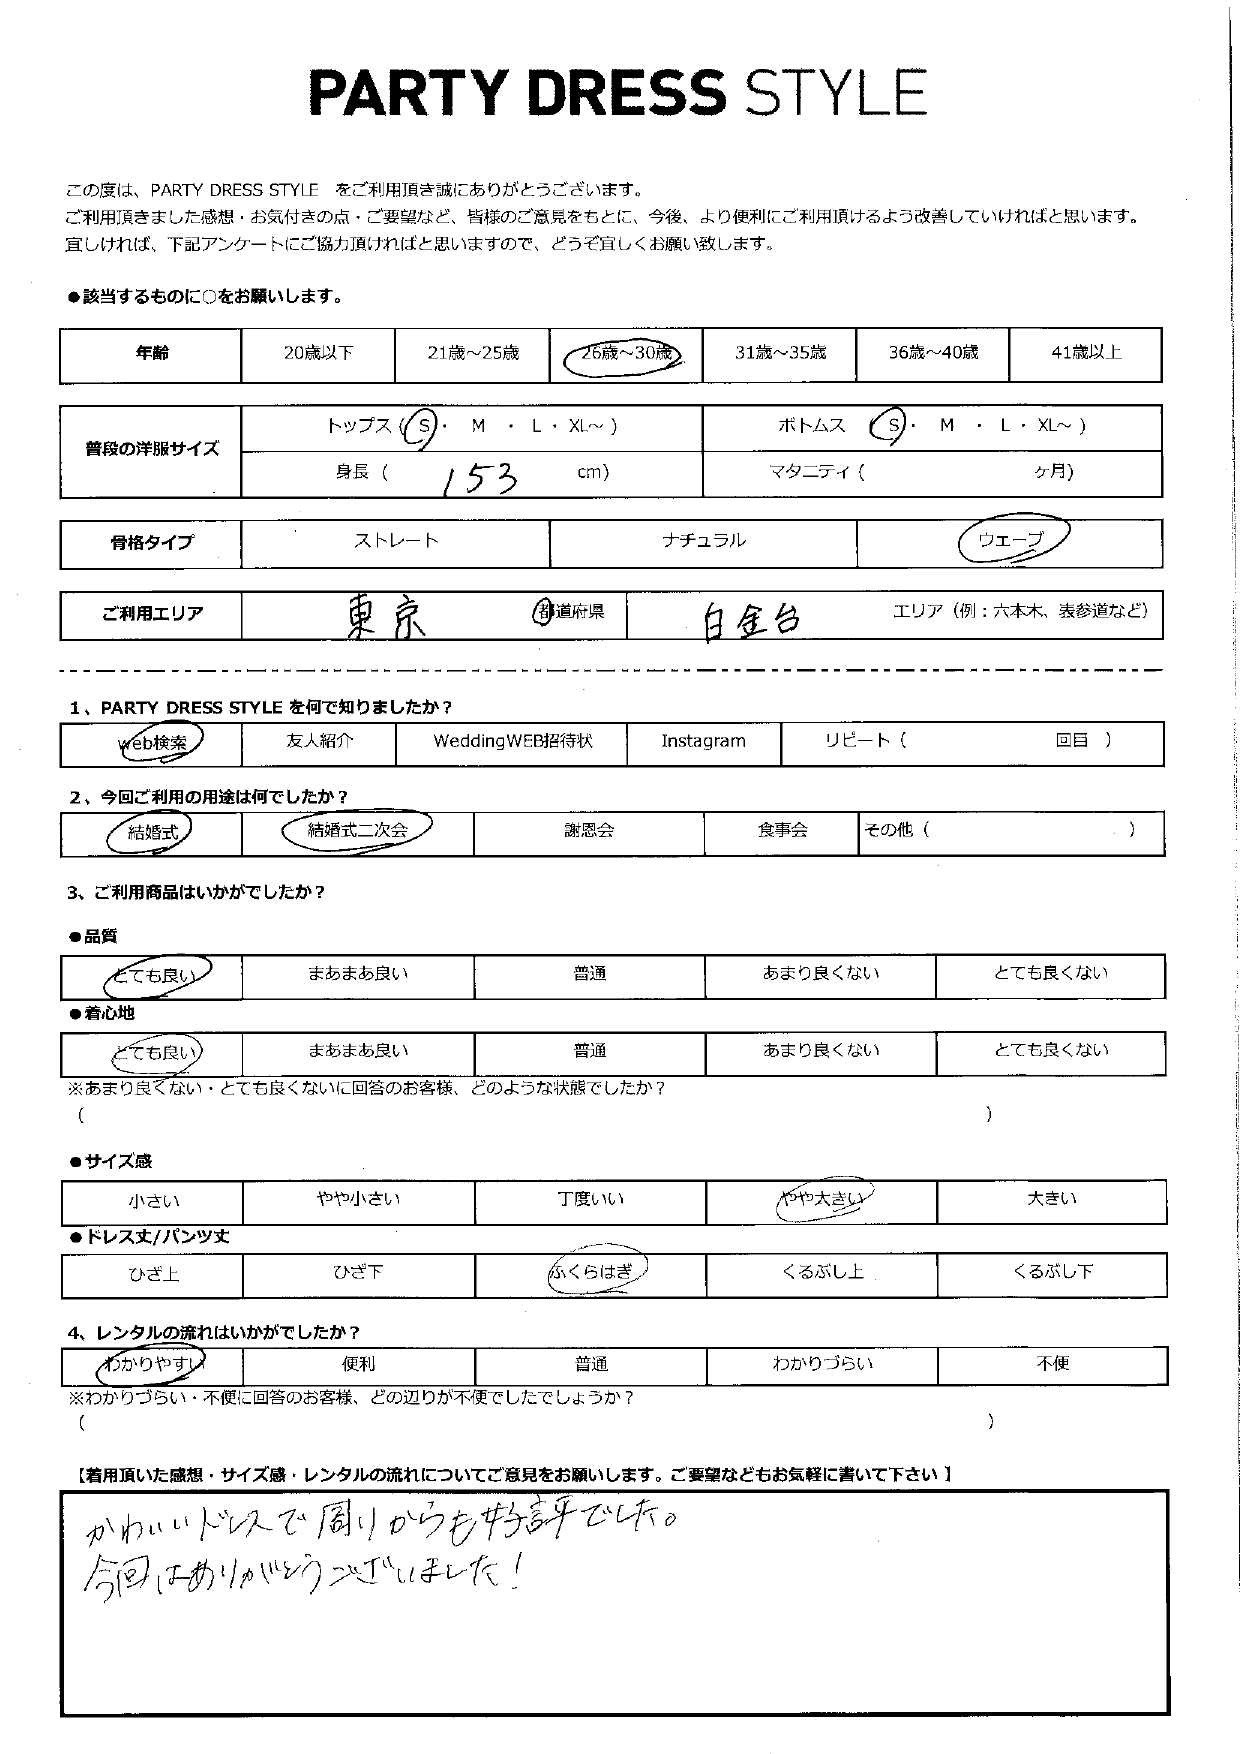 PARTY DRESS STYLE
この度は、PARTY DRESS STYLE をご利用頂き誠にありがとうございます。
ご利用頂きました感想・お気付きの点・ご要望など、皆様のご意見をもとに、今後、より便利にご利用頂けるよう改善していければと思います。
宜しければ、下記アンケートにご協力頂ければと思いますので、どうぞ宜しくお願い致します。
●該当するものに○をお願いします。
年齢 20歳以下 21歳～25歳 26歳～30歳 31歳～35歳 36歳～40歳 41歳以上
普段の洋服サイズ
トップス（S・ M ・ L・ XL～ ） ボトムス S・ M ・ L・ XL～ ）
身長（ 153 cm） マタニティ（ ヶ月）
骨格タイプ ストレート ナチュラル ウェーブ
ご利用エリア 東京 都道府県 白金台 エリア（例：六本木、表参道など）
1、PARTY DRESS STYLE を何で知りましたか？
web検索 友人紹介 WeddingWEB招待状 Instagram リピート（ 回目 ）
2、今回ご利用の用途は何でしたか？
結婚式 結婚式二次会 謝恩会 食事会 その他（ ）
3、ご利用商品はいかがでしたか？
●品質
とても良い まあまあ良い 普通 あまり良くない とても良くない
●着心地
とても良い まあまあ良い 普通 あまり良くない とても良くない
※あまり良くない・とても良くないに回答のお客様、どのような状態でしたか？
（ ）
●サイズ感
小さい やや小さい 丁度いい やや大きい 大きい
●ドレス丈/パンツ丈
ひざ上 ひざ下 ふくらはぎ くるぶし上 くるぶし下
4、レンタルの流れはいかがでしたか？
わかりやすい 便利 普通 わかりづらい 不便
※わかりづらい・不便に回答のお客様、どの辺りが不便でしたでしょうか？
（ ）
【着用頂いた感想・サイズ感・レンタルの流れについてご意見をお願いします。ご要望などもお気軽に書いて下さい】
かわいいドレスで周りからも好評でした。
今回はありがとうございました！